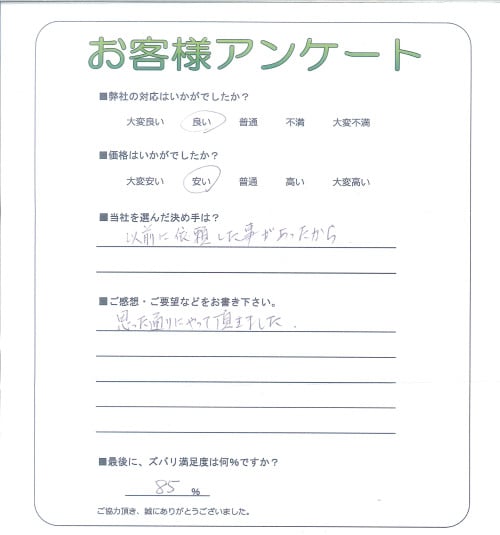 お客様アンケート
■弊社の対応はいかがでしたか？
大変良い 良い 普通 不満 大変不満
■価格はいかがでしたか？
大変安い 安い 普通 高い 大変高い
■当社を選んだ決め手は？
以前に依頼した事があったから
■ご感想・ご要望などをお書き下さい。
思った通りにやって頂きました.
■最後に、ズバリ満足度は何%ですか？
85 %
ご協力頂き、誠にありがとうございました。